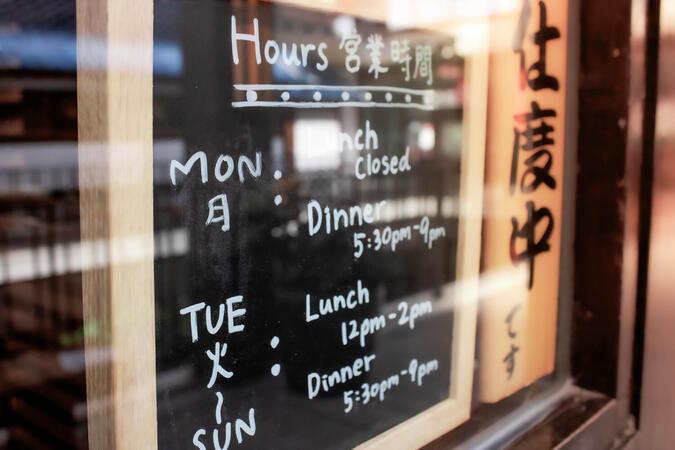 Hours 営業時間
MON : Lunch
closed
月
Dinner
5:30pm-9pm
TUE : Lunch
12pm-2pm
火
Dinner
5:30pm-9pm
~
SUN
仕度中です